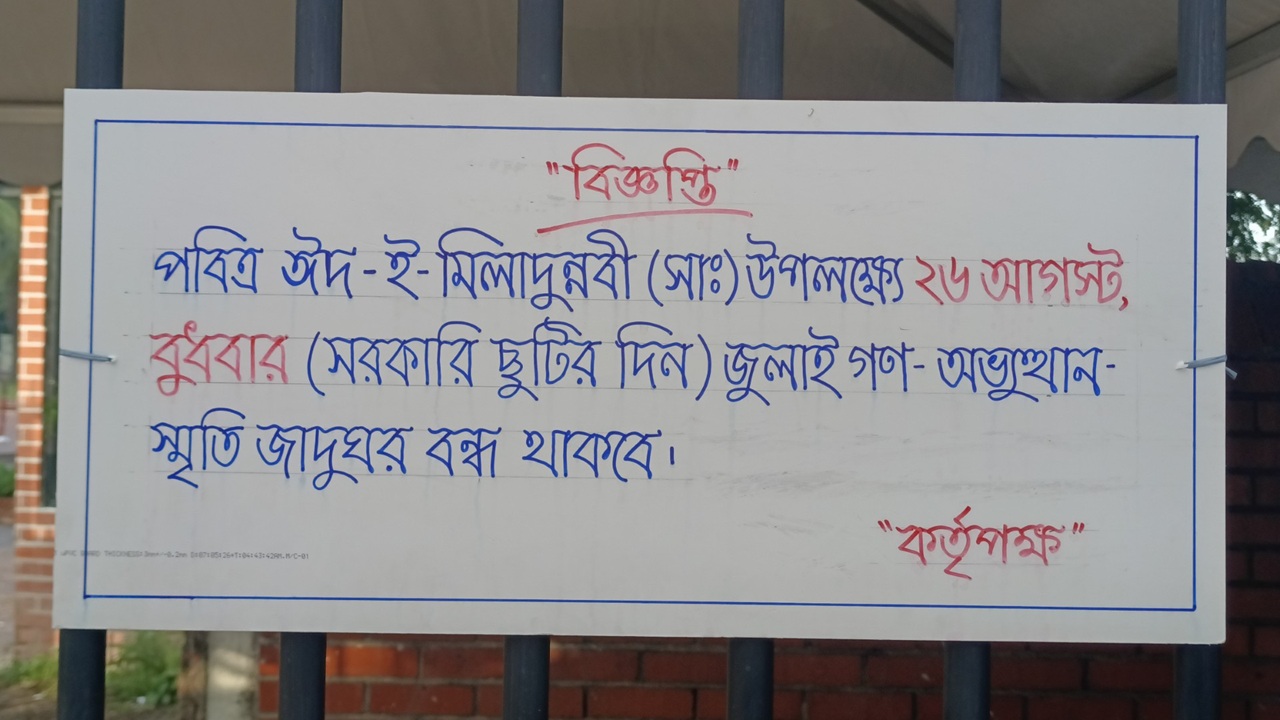 "বিজ্ঞপ্তি"
পবিত্র ঈদ-ই-মিলাদুন্নবী (সাঃ) উপলক্ষ্যে ২৬ আগস্ট,
বুধবার (সরকারি ছুটির দিন) জুলাই গণ-অভ্যুত্থান-
স্মৃতি জাদুঘর বন্ধ থাকবে।
"কর্তৃপক্ষ"